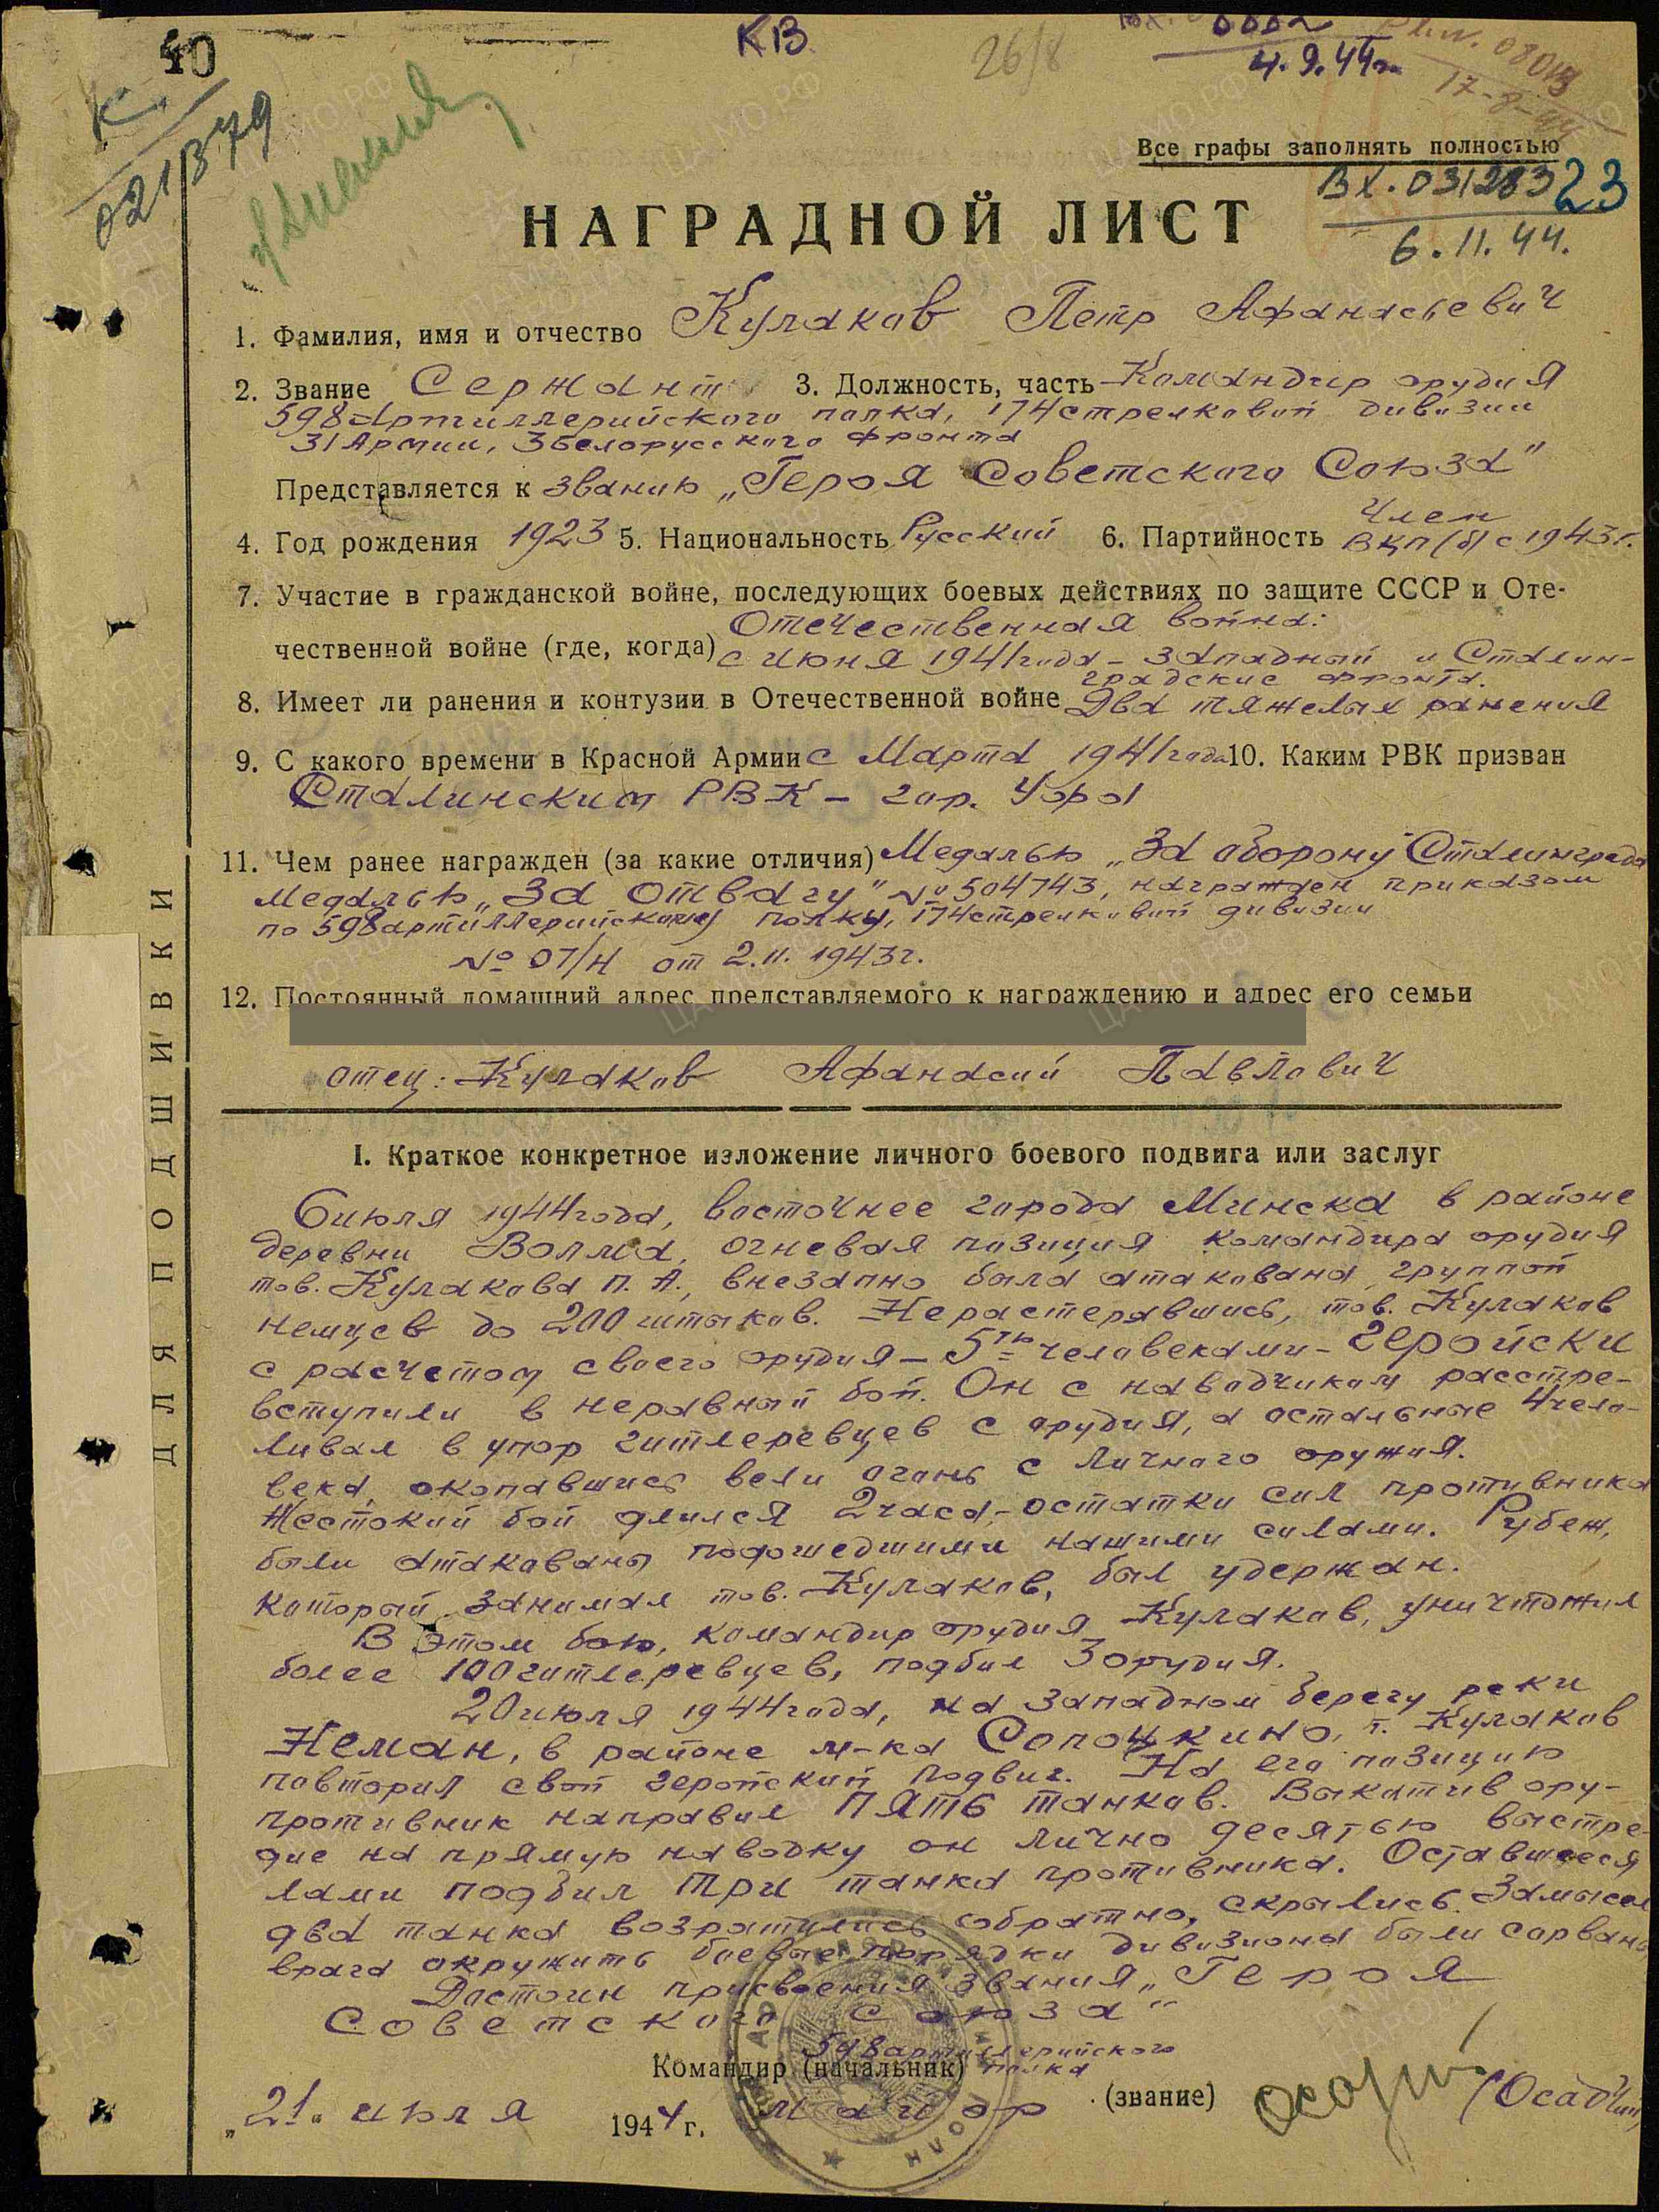 40
КВ
26/8
4.9.44г.
17-8-44
К
021379
Все графы заполнять полностью
Вх. 031283 23
6.11.44.
НАГРАДНОЙ ЛИСТ
1. Фамилия, имя и отчество Кулаков Петр Афанасьевич
2. Звание Сержант 3. Должность, часть Командир орудия
598 Артиллерийского полка, 174 стрелковой дивизии
31 Армии, 3 Белорусского фронта
Представляется к званию „Героя Советского Союза"
4. Год рождения 1923 5. Национальность Русский 6. Партийность Член ВКП(б) с 1943 г.
7. Участие в гражданской войне, последующих боевых действиях по защите СССР и Оте-
чественной войне (где, когда) Отечественная война:
с июня 1941 года – Западный и Сталин-
градские фронта.
8. Имеет ли ранения и контузии в Отечественной войне Два тяжелых ранения
9. С какого времени в Красной Армии с Марта 1941 года 10. Каким РВК призван
Сталинским РВК – гор.
11. Чем ранее награжден (за какие отличия) Медалью „За оборону Сталинграда
Медалью „За отвагу" № 504743, награжден приказом
по 598 артиллерийскому полку, 174 стрелковой дивизии
№ 07/н от 2.11.1943 г.
12. Постоянный домашний адрес представляемого к награждению и адрес его семьи
отец: Кулаков Афанасий Павлович
I. Краткое конкретное изложение личного боевого подвига или заслуг
6 июля 1944 года, восточнее города Минска в районе
деревни Волма, огневая позиция командира орудия
тов. Кулакова П. А., внезапно была атакована группой
немцев до 200 штыков. Нерастерявшись, тов. Кулаков
с расчетом своего орудия – 5тью человеками – геройски
вступили в неравный бой. Он с наводчиком расстре-
ливал в упор гитлеревцев с орудия, а остальные 4 чело-
века, окопавшись вели огонь с личного оружия.
Жестокий бой длился 2 часа, – остатки сил противника
были атакованы подошедшими нашими силами. Рубеж,
который занимал тов. Кулаков, был удержан.
В этом бою, командир орудия Кулаков, уничтожил
более 100 гитлеревцев, подбил 3 орудия.
20 июля 1944 года, на западном берегу реки
Неман, в районе м-ка Сопоцкино, т. Кулаков
повторил свой геройский подвиг. На его позицию
противник направил пять танков. Выкатив ору-
дие на прямую наводку он лично десятью выстре-
лами подбил три танка противника. Оставшиеся
два танка возратились обратно, скрылись. Замысел
врага окружить боевые порядки дивизиона были сорваны
Достоин присвоения звания „Героя
Советского Союза"
598 артиллерийского
Командир (начальник) полка
майор (звание) (Осадчий)
„21" июля 1944 г.
ДЛЯ ПОДШИВКИ